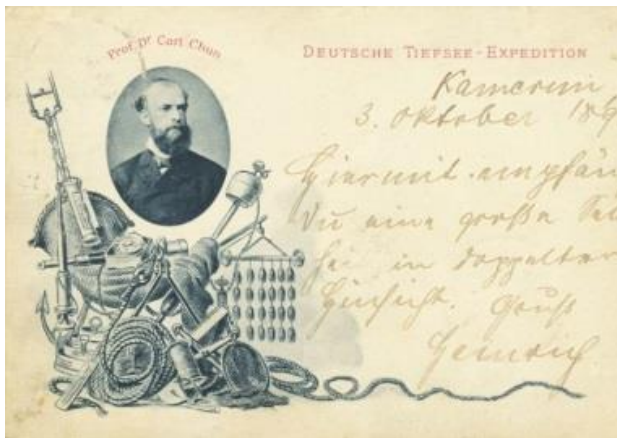 Prof. Dr Carl Chun
DEUTSCHE TIEFSEE-EXPEDITION
Kamerun
3. Oktober 189
Hiermit empfän
Du eine große Sel
heit in doppelter
Hinsicht. Gruß
Heinrich